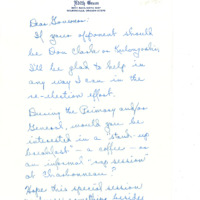 Dear Governor:
If your opponent should
be Don Clark or Kulongoski,
I'd be glad to help in
any way I can in the
re-election effort.
During the Primary and/or
General, would you be
interested in a "stand-up
breakfast" - a coffee - or
an informal "rap session"
at Charbonneau?
Hope this special session
besides